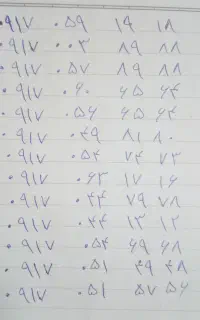 ۰۹۱۷ ۰۵۹ ۱۹ ۱۸
۰۹۱۷ ۰۰۳ ۸۹ ۸۸
۰۹۱۷ ۰۵۷ ۸۹ ۸۸
۰۹۱۷ ۰۶۰ ۴۵ ۴۴
۰۹۱۷ ۰۵۶ ۴۵ ۴۴
۰۹۱۷ ۰۴۹ ۸۱ ۸۰
۰۹۱۷ ۰۵۴ ۷۴ ۷۳
۰۹۱۷ ۰۶۳ ۱۷ ۱۶
۰۹۱۷ ۰۴۳ ۷۹ ۷۸
۰۹۱۷ ۰۴۴ ۱۳ ۱۲
۰۹۱۷ ۰۵۴ ۴۹ ۴۸
۰۹۱۷ ۰۵۱ ۴۹ ۴۸
۰۹۱۷ ۰۵۱ ۵۷ ۵۶